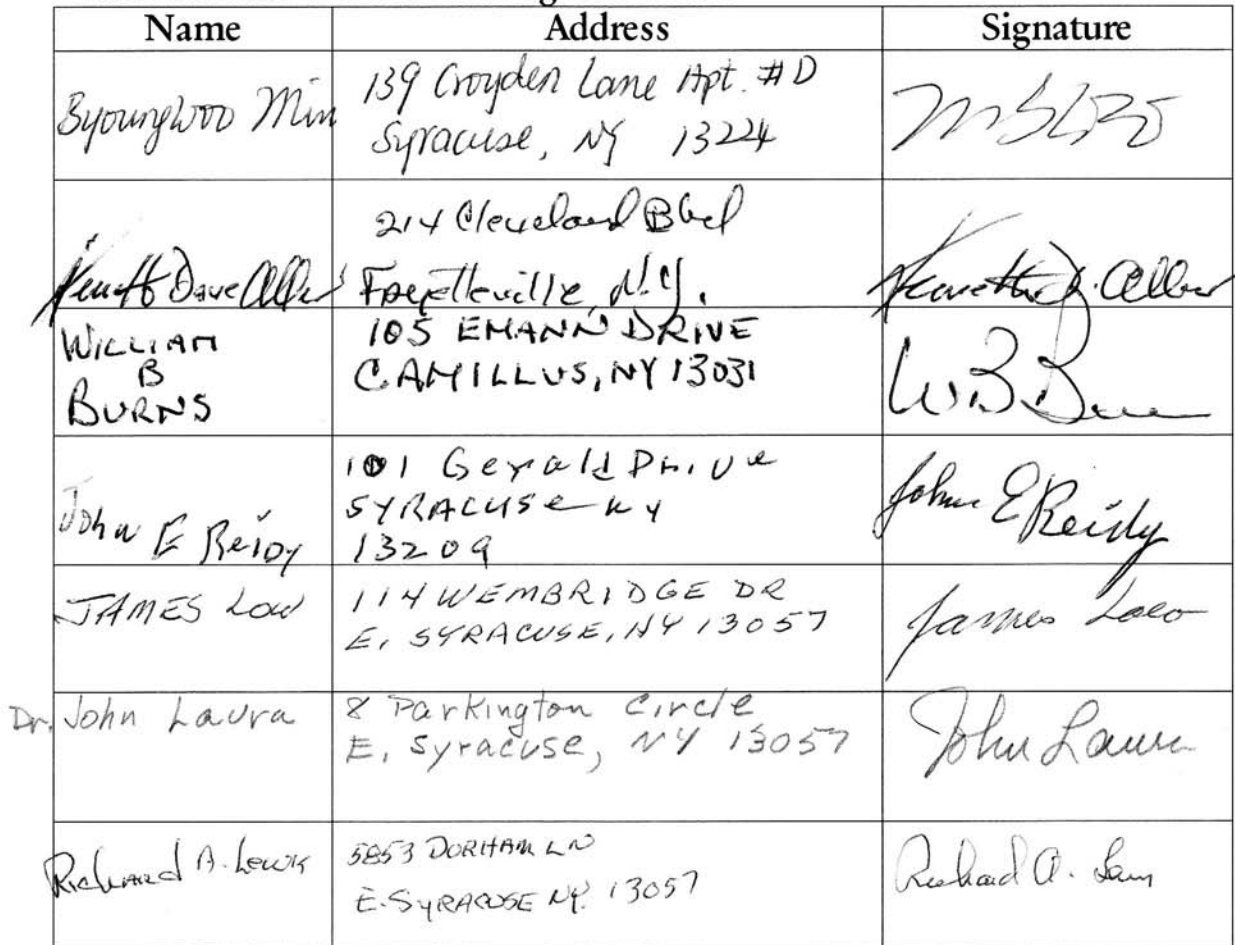 Name Address Signature
Byoungwoo Min 139 Croyden Lane Apt. #D
Syracuse, NY 13224
214 Cleveland Blvd
Kenneth Dave Fayetteville, N.Y. Kenneth D.
WILLIAM
B
BURNS
105 EMANN DRIVE
CAMILLUS, NY 13031
W B
John E Reidy
101 Gerald Drive
SYRACUSE NY
13209
John E Reidy
JAMES LOW
114 WEMBRIDGE DR
E. SYRACUSE, NY 13057
James Low
Dr. John Laura
8 Parkington Circle
E. Syracuse, NY 13057
John Laura
Richard A. Lewis
5853 DORHAM LN
E. SYRACUSE NY. 13057
Richard A.